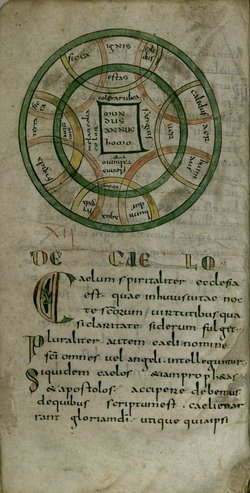 ignis
sicca
calidus
estas
colerarubea
MUN
DUS
ANNUS
homo
sanguis
uer
calidus
aer
terra
aqua
XII
DE CAELO
Caelum spiritaliter ecclesia
est quae inhuiusuitae noc
te scorum uirtutibus qua
si claritate siderum fulget
Pluraliter autem caeli nomine
sci omnes uel angeli intelleguntur
Siquidem caelos &iamproph&as
&apostolos accipere debemus
dequibus scriptumest caelienar
rant gloriamdi utique quiaipsi